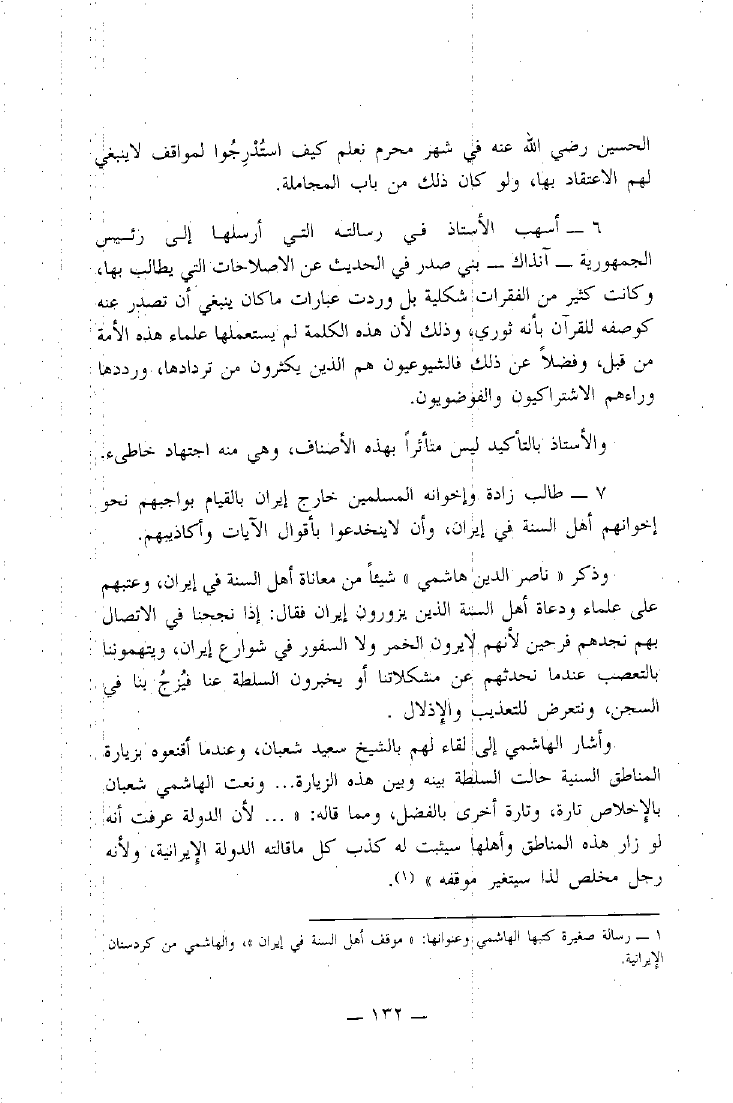 الحسين رضي الله عنه في شهر محرم نعلم كيف استُدْرِجُوا لمواقف لاينبغي
لهم الاعتقاد بها، ولو كان ذلك من باب المجاملة.
٦ ــ أسهب الأستاذ في رسالته التي أرسلها إلى رئيس
الجمهورية ــ آنذاك ــ بني صدر في الحديث عن الاصلاحات التي يطالب بها،
وكانت كثير من الفقرات شكلية بل وردت عبارات ماكان ينبغي أن تصدر عنه
كوصفه للقرآن بأنه ثوري، وذلك لأن هذه الكلمة لم يستعملها علماء هذه الأمة
من قبل، وفضلاً عن ذلك فالشيوعيون هم الذين يكثرون من تردادها، ورددها
وراءهم الاشتراكيون والفوضويون.
والأستاذ بالتأكيد ليس متأثراً بهذه الأصناف، وهي منه اجتهاد خاطىء.
٧ ــ طالب زادة وإخوانه المسلمين خارج إيران بالقيام بواجبهم نحو
إخوانهم أهل السنة في إيران، وأن لاينخدعوا بأقوال الآيات وأكاذيبهم.
وذكر « ناصر الدين هاشمي » شيئاً من معاناة أهل السنة في إيران، وعتبهم
على علماء ودعاة أهل السنة الذين يزورون إيران فقال: إذا نجحنا في الاتصال
بهم نجدهم فرحين لأنهم لايرون الخمر ولا السفور في شوارع إيران، ويتهموننا
بالتعصب عندما نحدثهم عن مشكلاتنا أو يخبرون السلطة عنا فيُزجُ بنا في
السجن، ونتعرض للتعذيب والإذلال .
وأشار الهاشمي إلى لقاء لهم بالشيخ سعيد شعبان، وعندما أقنعوه بزيارة
المناطق السنية حالت السلطة بينه وبين هذه الزيارة... ونعت الهاشمي شعبان
بالإخلاص تارة، وتارة أخرى بالفضل، ومما قاله: « ... لأن الدولة عرفت أنه
لو زار هذه المناطق وأهلها سيثبت له كذب كل ماقالته الدولة الإيرانية، ولأنه
رجل مخلص لذا سيتغير موقفه » (١).
١ ــ رسالة صغيرة كتبها الهاشمي وعنوانها: « موقف أهل السنة في إيران »، والهاشمي من كردستان
الإيرانية.
ــ ١٣٢ ــ